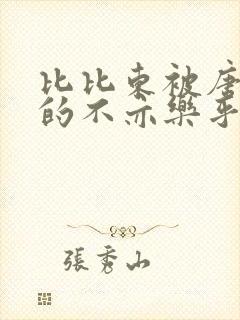 比比東被唐
的不亦樂乎
張秀山